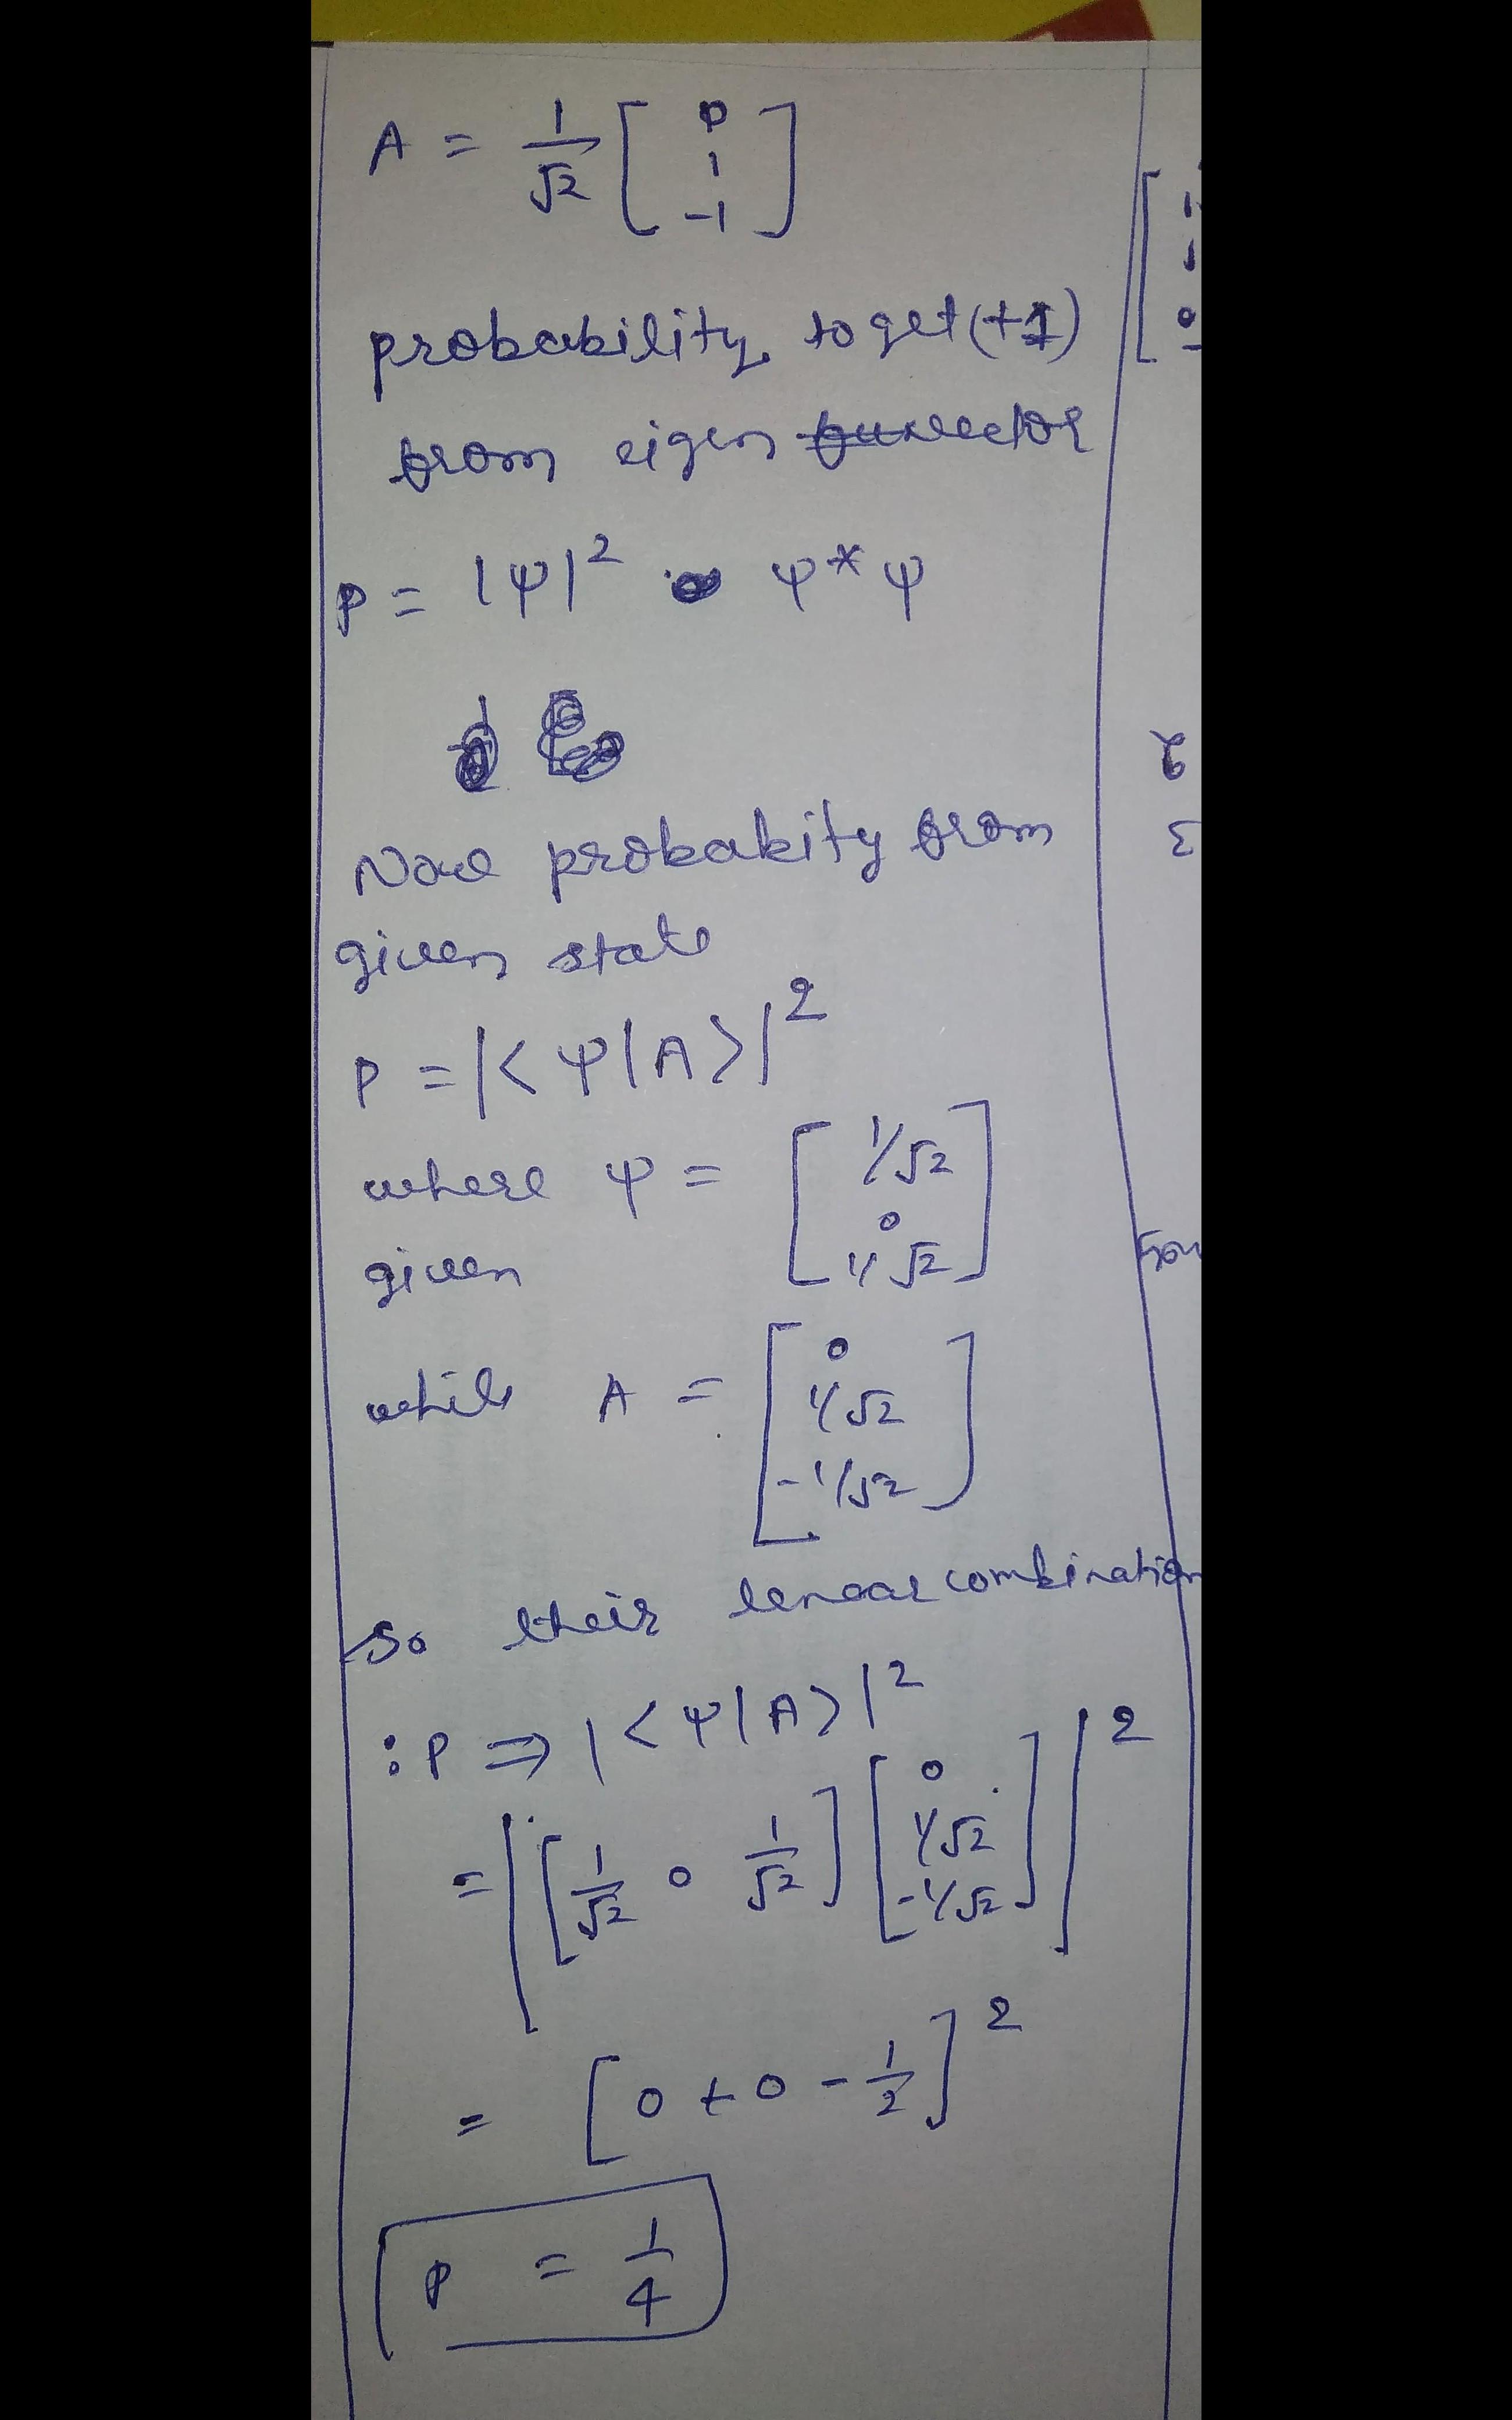 A = 1/√2 [ 0 1 -1 ]
probability to get (+1)
from eigen vector
P = |ψ|² ψ*ψ
Now probabality from
given state
P = |<ψ|A>|²
where ψ = [ 1/√2 0 1/√2 ]
given
while A = [ 0 1/√2 -1/√2 ]
so their lenear combination
: P ⇒ |<ψ|A>|²
= | [ 1/√2 0 1/√2 ] [ 0 1/√2 -1/√2 ] |²
= [ 0 + 0 - 1/2 ]²
P = 1/4